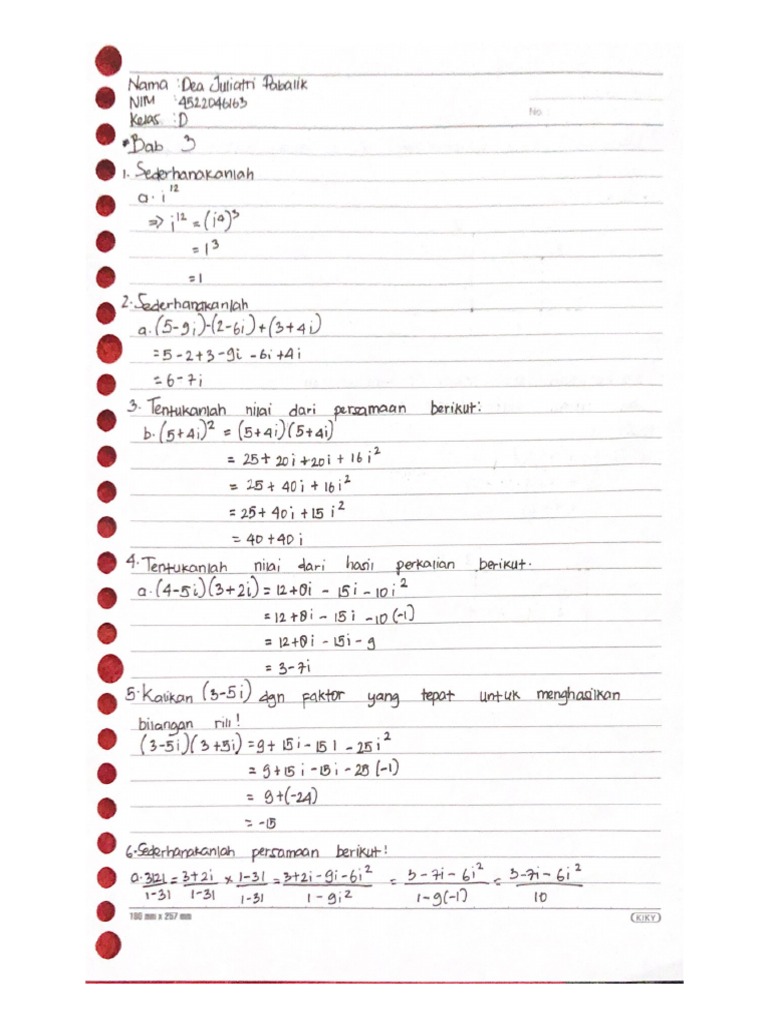 Nama : Dea Juliatri Pabalik
NIM : 4522046163
Kelas : D
No
*Bab 3
1. Sederhanakanlah
a. i¹²
⇒ i¹² = (i⁴)³
= 1³
= 1
2. Sederhanakanlah
a. (5-9i)-(2-6i)+(3+4i)
= 5-2+3-9i -6i+4i
= 6-7i
3. Tentukanlah nilai dari persamaan berikut:
b. (5+4i)² = (5+4i)(5+4i)
= 25+20i+20i+16i²
= 25+40i+16i²
= 25+40i+15i²
= 40+40i
4. Tentukanlah nilai dari hasil perkalian berikut.
a. (4-5i)(3+2i) = 12+8i - 15i - 10i²
= 12+8i - 15i - 10(-1)
= 12+8i - 15i - 9
= 3-7i
5. Kalikan (3-5i) dgn faktor yang tepat untuk menghasilkan
bilangan riil!
(3-5i)(3+5i) = 9+15i-15i-25i²
= 9+15i-15i-25(-1)
= 9+(-24)
= -15
6. Sederhanakanlah persamaan berikut!
a. 3+2i/1-3i = 3+2i/1-3i × 1-3i/1-3i = 3+2i-9i-6i²/1-9i² = 3-7i-6i²/1-9(-1) = 3-7i-6i²/10
180 mm x 257 mm
KIKY